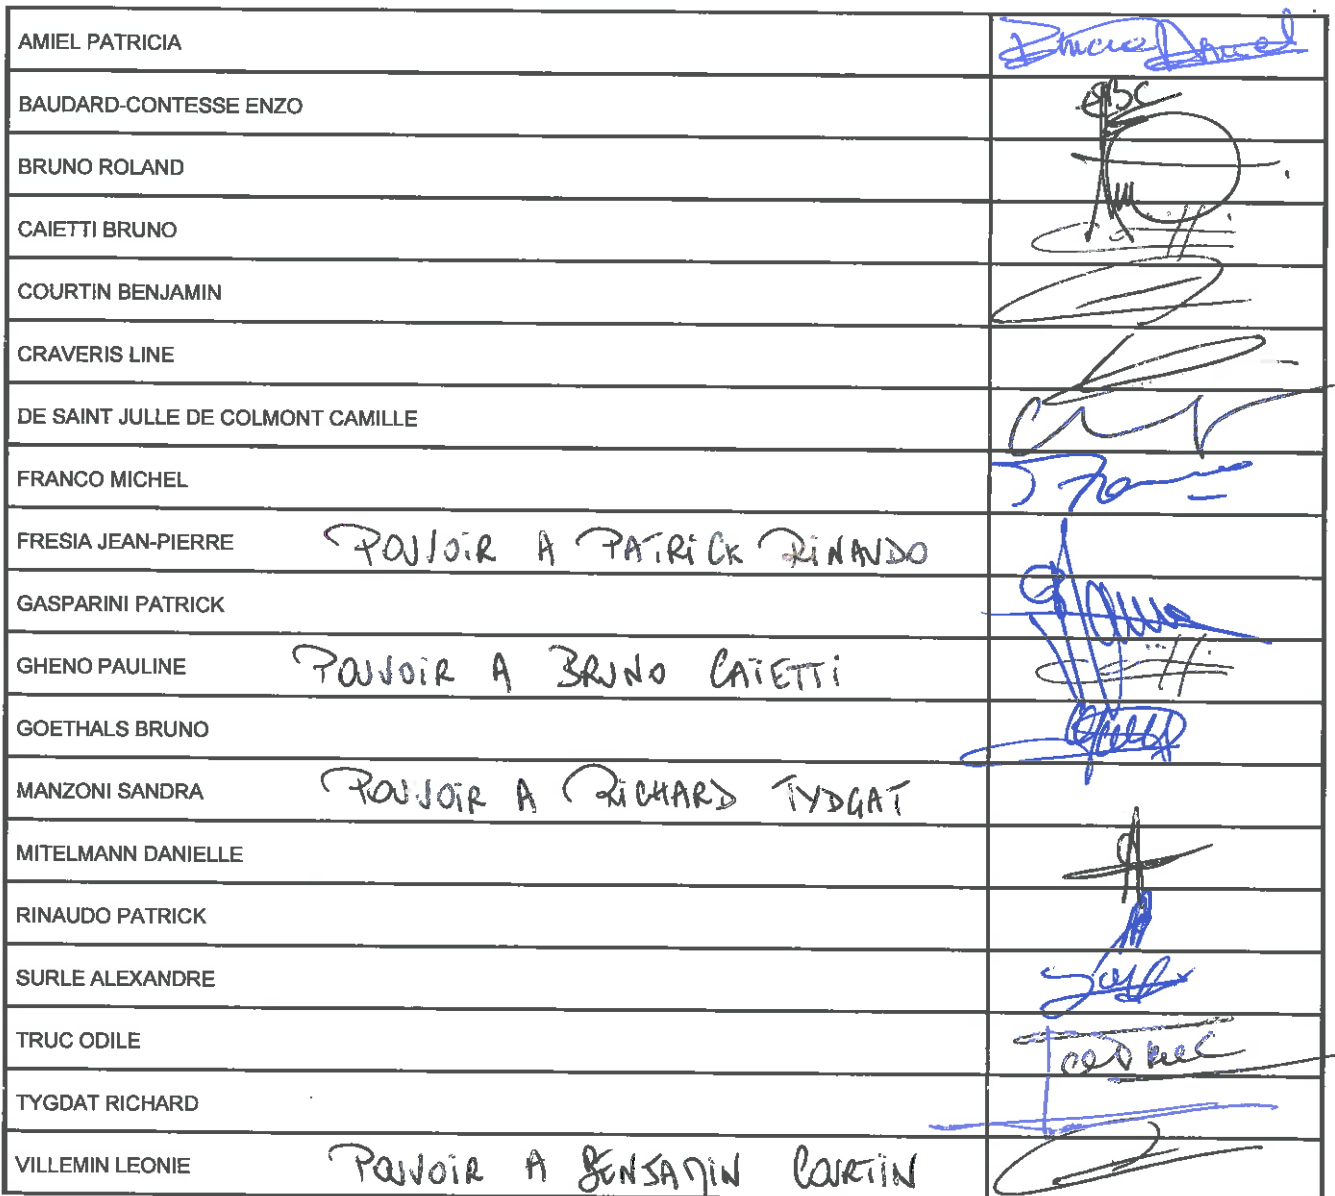 AMIEL PATRICIA
BAUDARD-CONTESSE ENZO
BRUNO ROLAND
CAIETTI BRUNO
COURTIN BENJAMIN
CRAVERIS LINE
DE SAINT JULLE DE COLMONT CAMILLE
FRANCO MICHEL
FRESIA JEAN-PIERRE POUVOIR A PATRICK RINAUDO
GASPARINI PATRICK
GHENO PAULINE POUVOIR A BRUNO CAÏETTI
GOETHALS BRUNO
MANZONI SANDRA POUVOIR A RICHARD TYDGAT
MITELMANN DANIELLE
RINAUDO PATRICK
SURLE ALEXANDRE
TRUC ODILE
TYGDAT RICHARD
VILLEMIN LEONIE POUVOIR A BENJAMIN COURTIIN